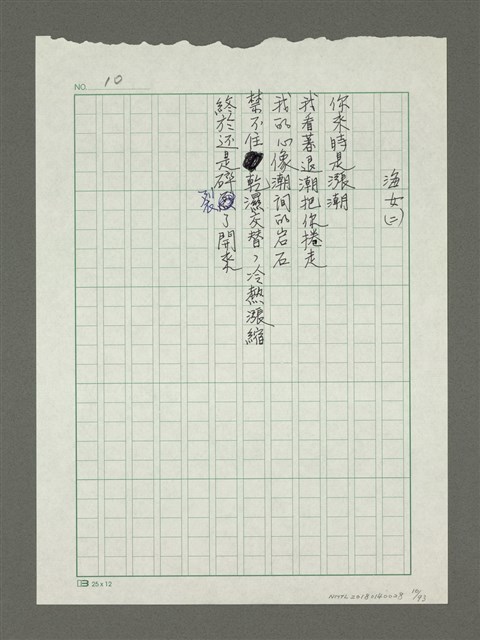 NO. 10
海女(二)
你來時是漲潮
我看著退潮把你捲走
我的心像潮間的岩石
禁不住乾濕交替、冷熱漲縮
終於还是碎裂了開來
25x12
NMTL20180140028